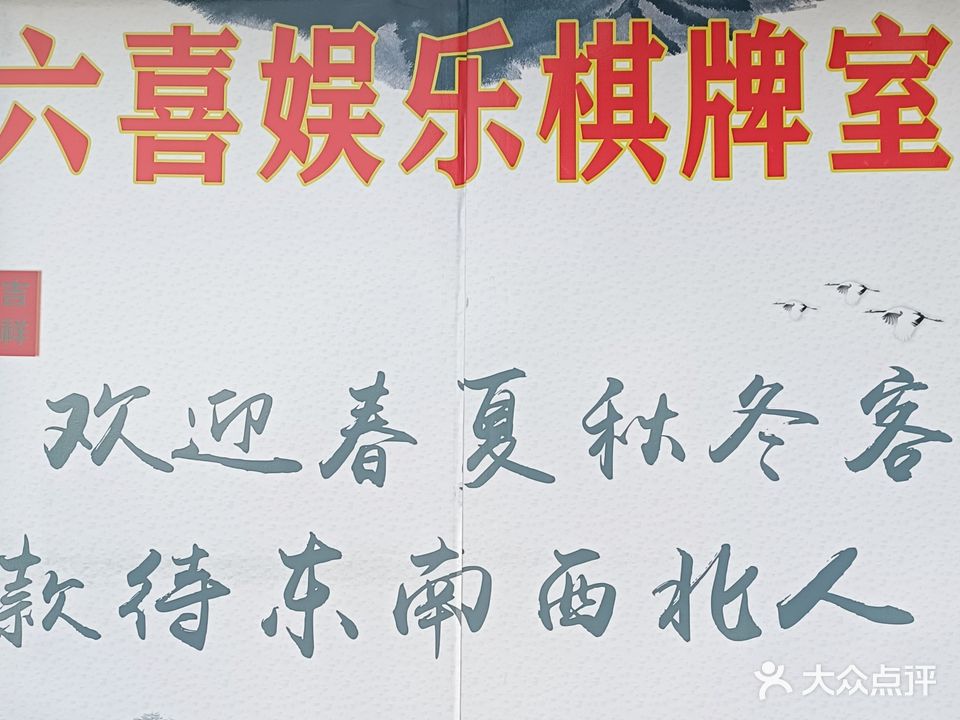 六喜娱乐棋牌室
吉祥
欢迎春夏秋冬客
款待东南西北人
大众点评